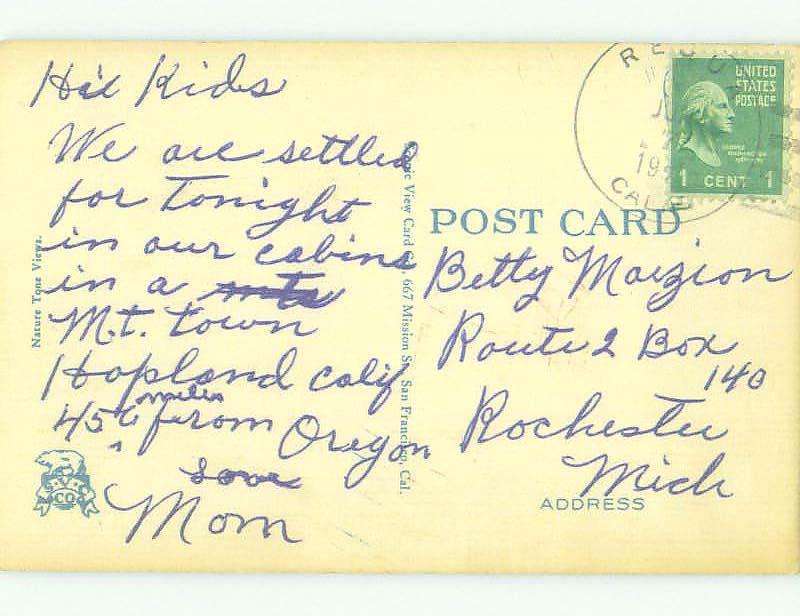 Hi Kids
We are settled
for tonight
in our cabins
in a
Mt. town
Hopland calif
456 miles from Oregon
Love
Mom
Nature Tone Views.
Scenic View Card Co., 667 Mission St., San Francisco, Cal.
S.V.C.
CO.
POST CARD
Betty Maizion
Route 2 Box
140
Rochester
Mich
ADDRESS
UNITED
STATES
POSTAGE
1 CENT 1
CALIF